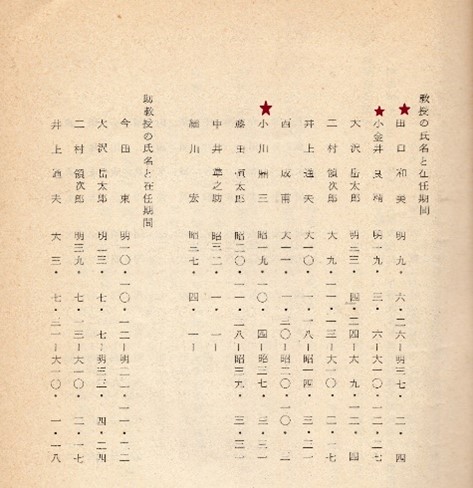 教授の氏名と在任期間
田口和美 明 九・六・二六―明三七・二・四
小金井良精 明一九・三・六―大一〇・一二・二七
大沢岳太郎 大 九・一二・四
二村領次郎 大 九・一一・一三―大一〇・二・
井上通夫 大一一・一・一八―昭一四・三・
西成甫 大一一・一・三〇―昭二〇・一〇・
小川鼎三 昭一九・一〇・四―昭三七・三・三一
藤田恒太郎 昭二〇・一一・二八―昭三九・
中井準之助 昭三二・一・一―
細川宏 昭三七・四・一―
助教授の氏名と在任期間
今田束 明一〇・一〇・一二―明二一・一一・二二
大沢岳太郎 七・七―明三三・四・二四
二村領次郎 明三九・七・ ―大一〇・二・一七
井上通夫 大 三・七・二一―大一〇・一・一八